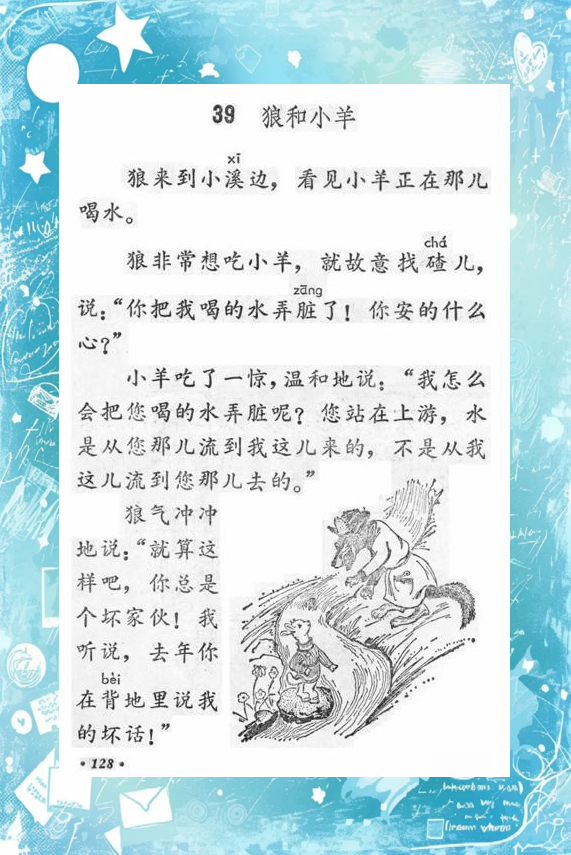 39 狼和小羊
xī
狼来到小溪边，看见小羊正在那儿
喝水。
chá
狼非常想吃小羊，就故意找碴儿，
zāng
说：“你把我喝的水弄脏了！你安的什么
心？”
小羊吃了一惊，温和地说：“我怎么
会把您喝的水弄脏呢？您站在上游，水
是从您那儿流到我这儿来的，不是从我
这儿流到您那儿去的。”
狼气冲冲
地说：“就算这
样吧，你总是
个坏家伙！我
听说，去年你
bèi
在背地里说我
的坏话！”
·128·